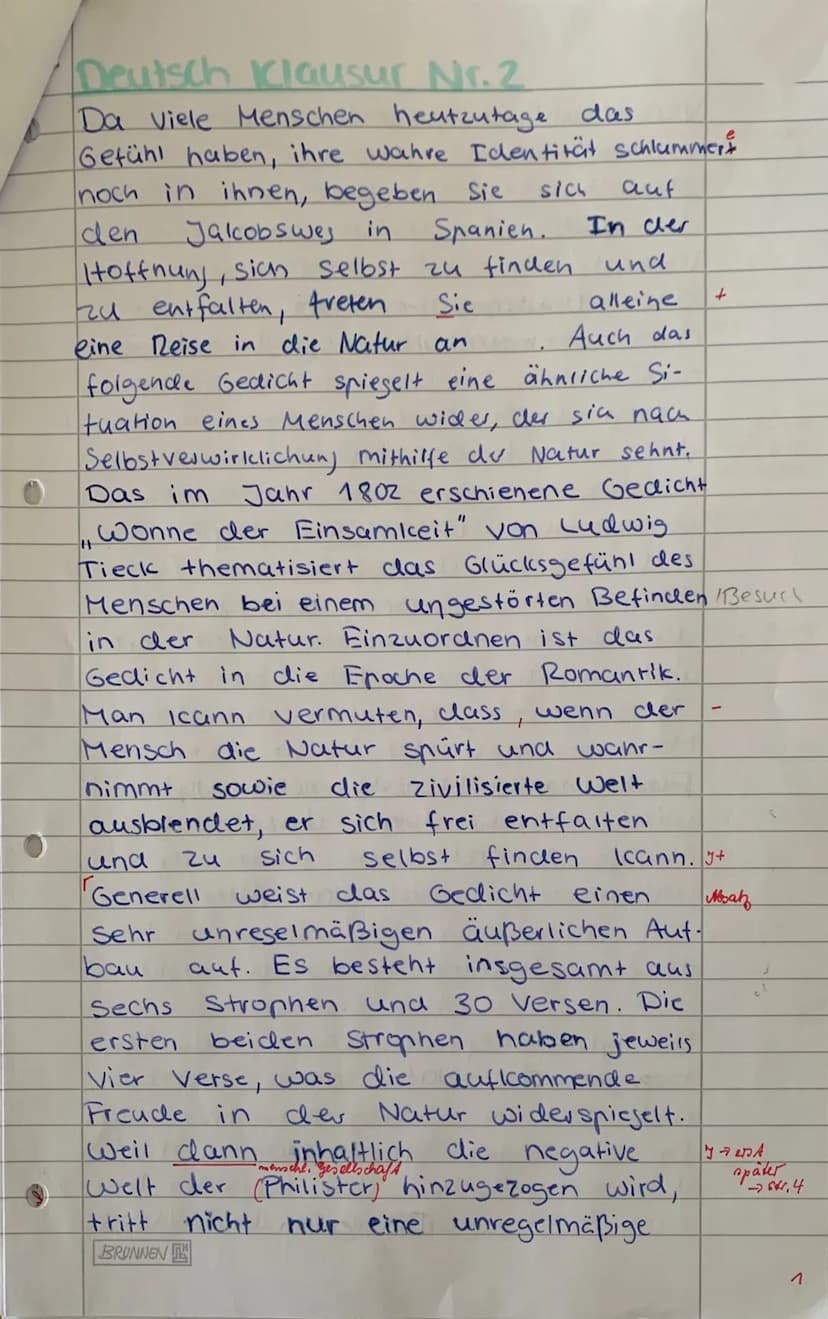 Deutsch Klausur Nr. 2
Da viele Menschen heutzutage das
Gefühl haben, ihre wahre Identität schlummert e
noch in ihnen, begeben Sie sich auf
den Jakobsweg in Spanien. In der
Hoffnung, sich selbst zu finden und
zu entfalten, treten Sie alleine +
eine Reise in die Natur an . Auch das
folgende Gedicht spiegelt eine ähnliche Si-
tuation eines Menschen wider, der sich nach
Selbstverwirklichung mithilfe der Natur sehnt.
Das im Jahr 1802 erschienene Gedicht
„Wonne der Einsamkeit" von Ludwig
Tieck thematisiert das Glücksgefühl des
Menschen bei einem ungestörten Befinden /Besuch
in der Natur. Einzuordnen ist das
Gedicht in die Epoche der Romantik.
Man kann vermuten, dass, wenn der -
Mensch die Natur spürt und wahr-
nimmt sowie die zivilisierte Welt
ausblendet, er sich frei entfalten
und zu sich selbst finden kann. +
Generell weist das Gedicht einen Absatz
sehr unregelmäßigen äußerlichen Auf-
bau auf. Es besteht insgesamt aus
sechs Strophen und 30 Versen. Die
ersten beiden Strophen haben jeweils
vier Verse, was die aufkommende
Freude in der Natur widerspiegelt.
Weil dann inhaltlich die negative → erst
menschl. Gesellschaft später
Welt der (Philister) hinzugezogen wird, → Str. 4
tritt nicht nur eine unregelmäßige
BRUNNEN
1